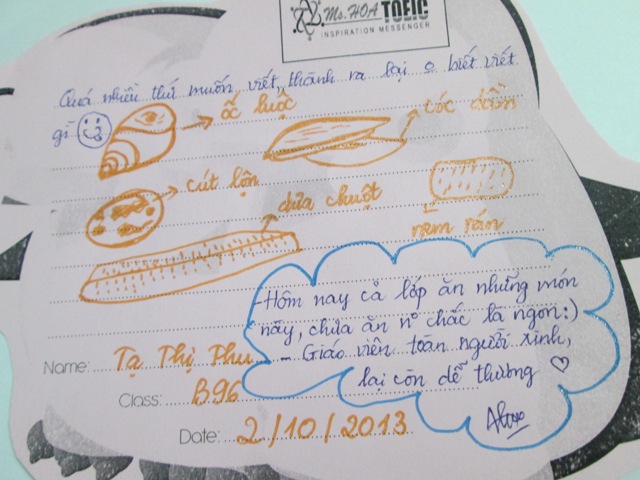 Ms. HOA TOEIC
INSPIRATION MESSENGER
Quá nhiều thứ muốn viết, thành ra lại o biết viết
gì
ốc luộc
cóc dầm
cút lộn
dưa chuột
nem rán
- Hôm nay cả lớp ăn những món
này, chưa ăn nº chắc là ngon:)
- Giáo viên toàn người xinh,
lại còn dễ thương ♡
Name: Tạ Thị Phu
Class: B96
Date: 2/10/2013